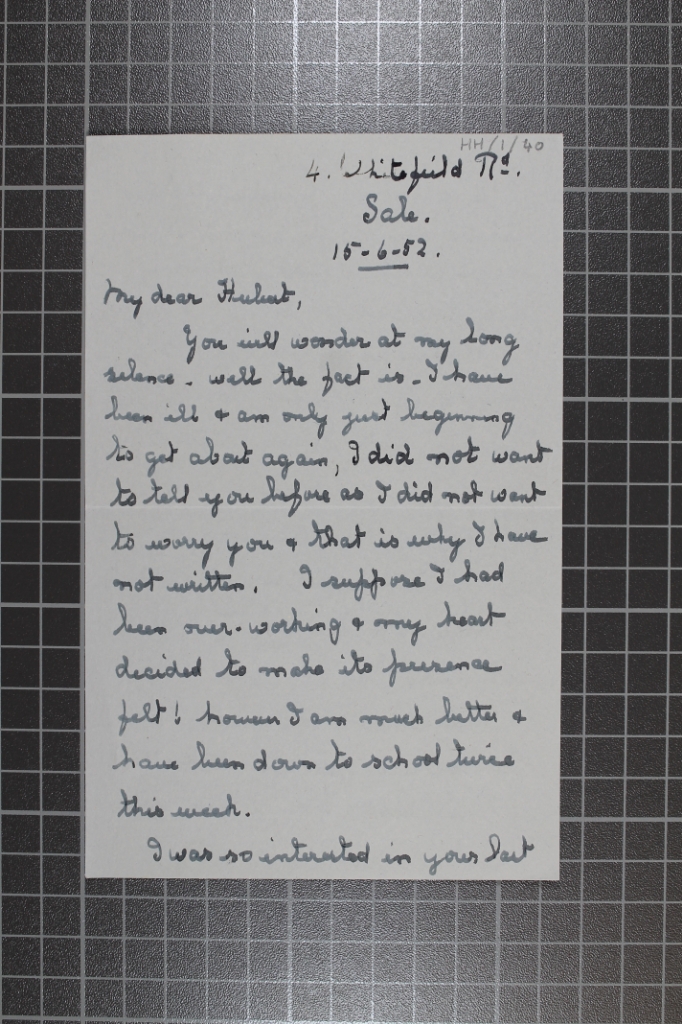 HH/1/40
4. Whitefield Rd.
Sale.
15-6-52.
My dear Hubert,
You will wonder at my long
silence - well the fact is - I have
been ill & am only just beginning
to get about again, I did not want
to tell you before as I did not want
to worry you & that is why I have
not written. I suppose I had
been over-working & my heart
decided to make its presence
felt! however I am much better &
have been down to school twice
this week.
I was so interested in your last